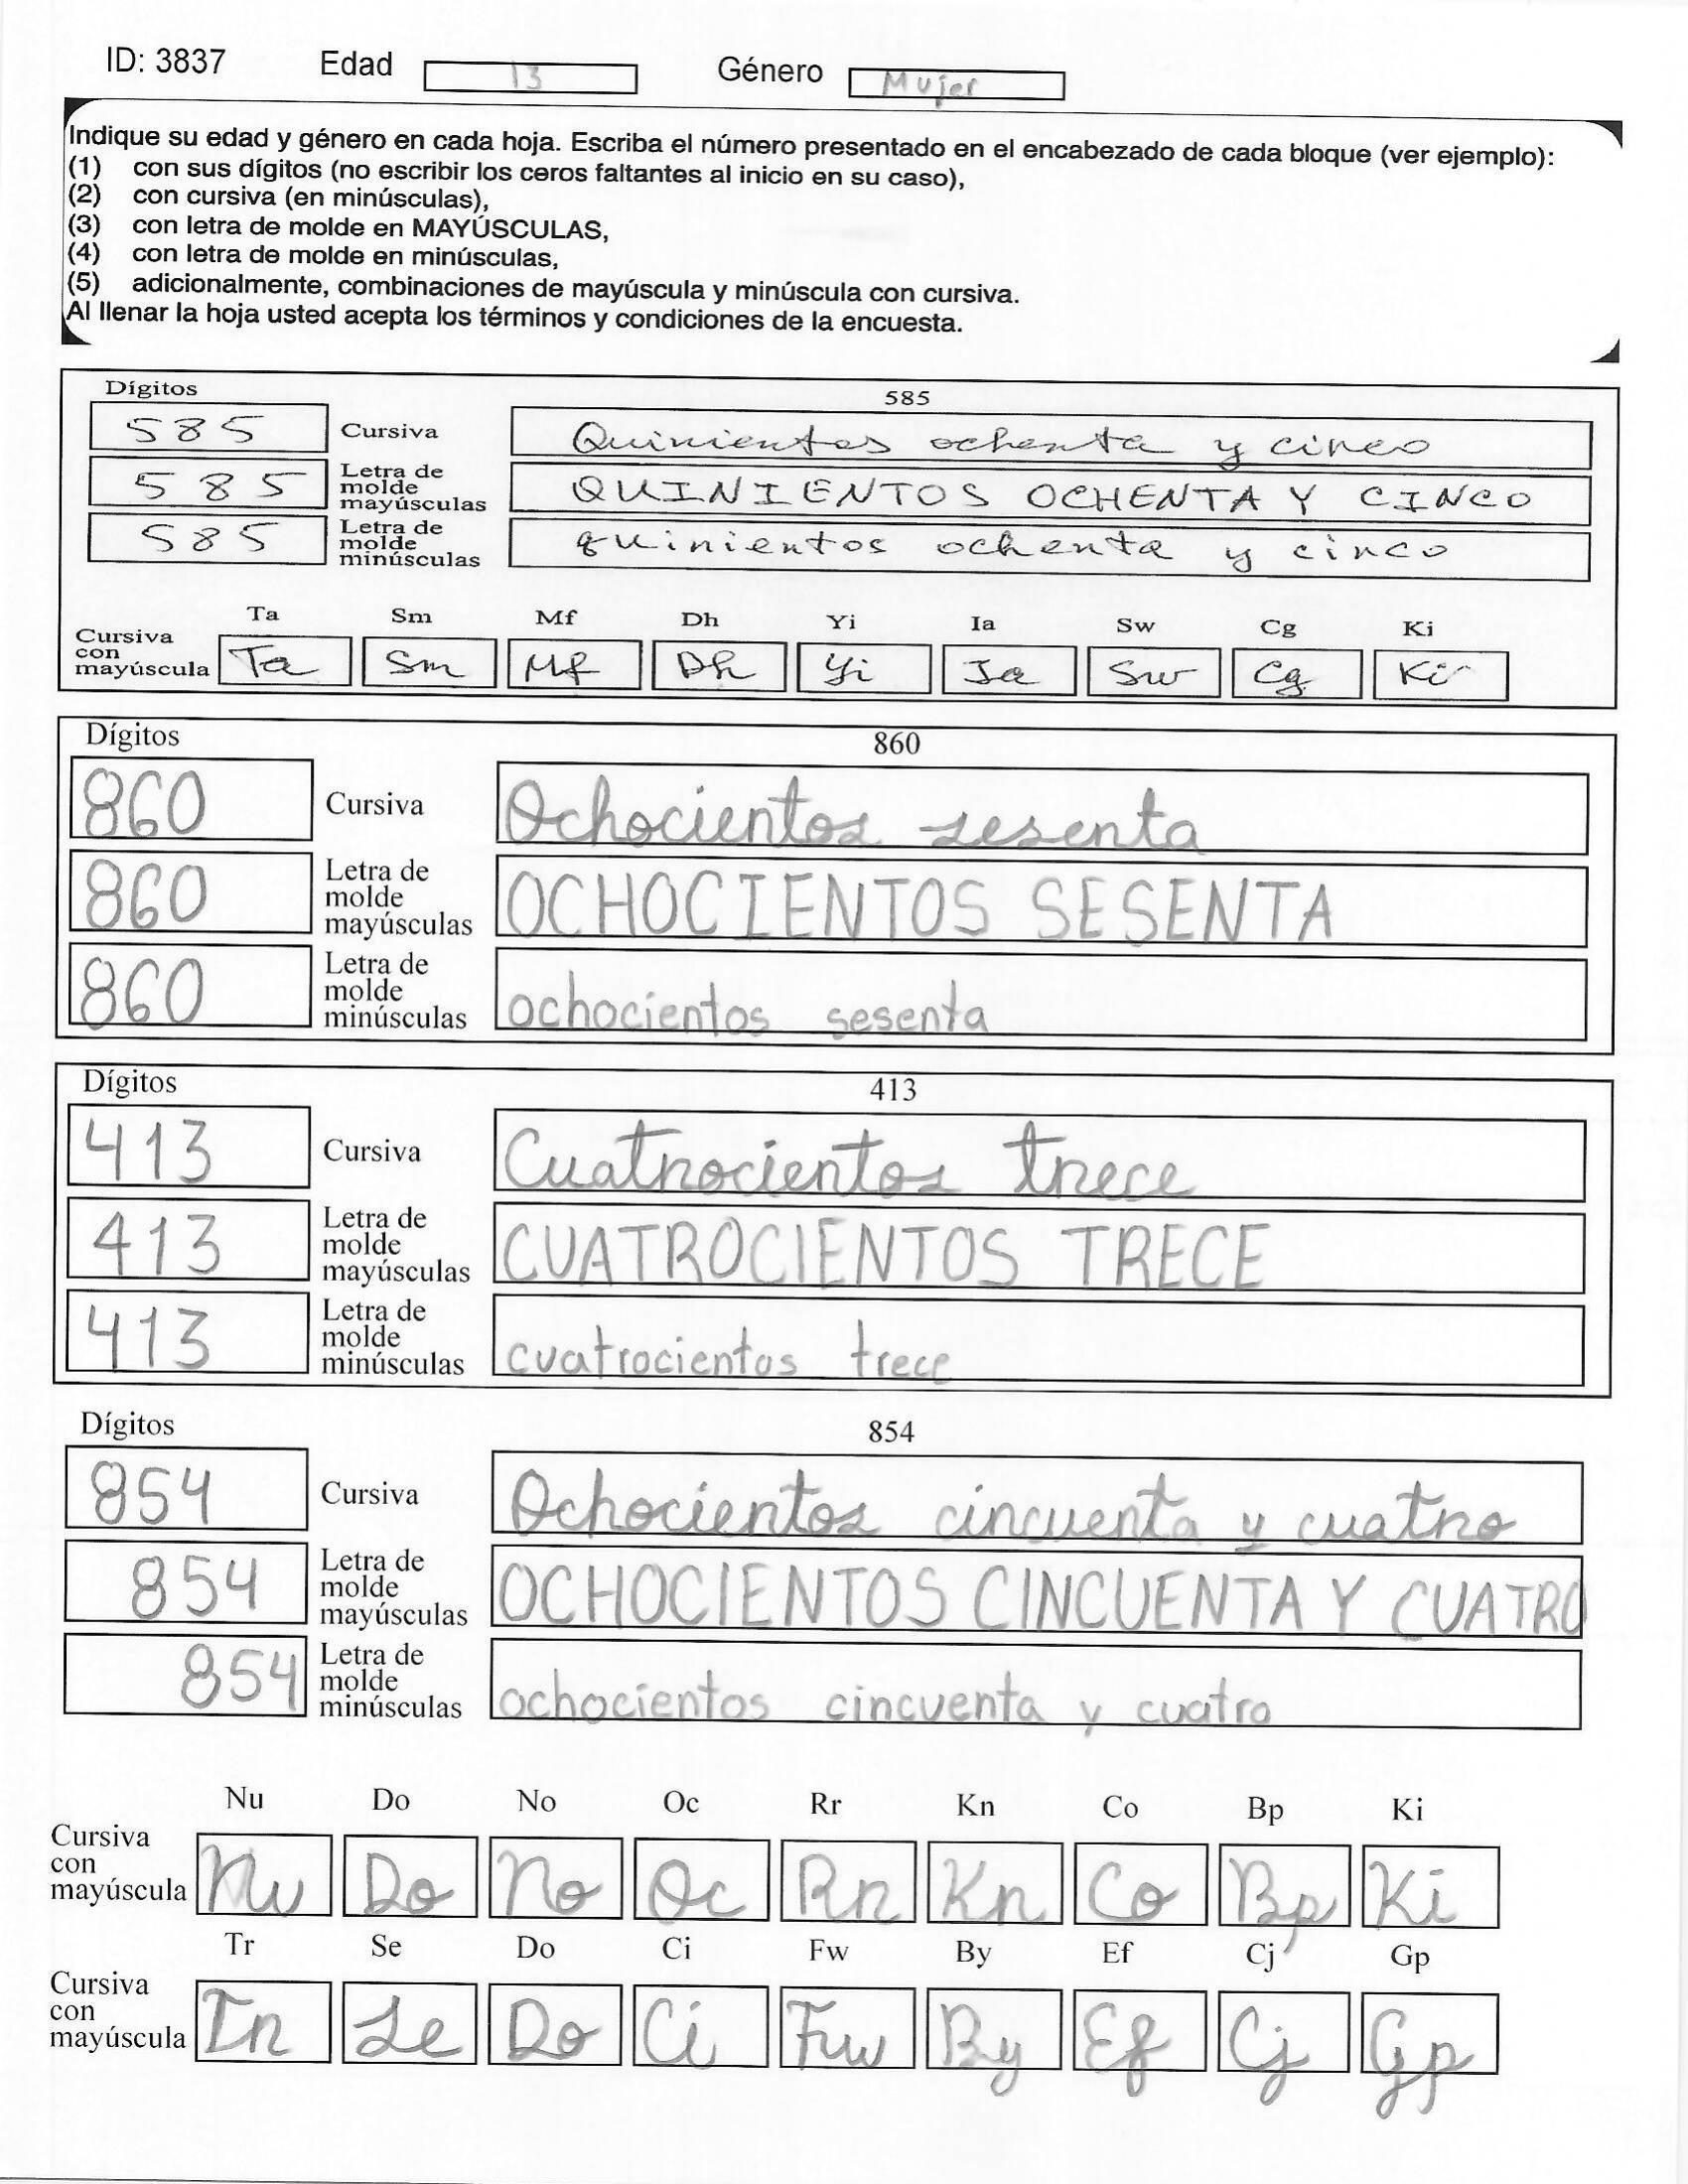 ID: 3837 Edad 13 Género Mujer
Indique su edad y género en cada hoja. Escriba el número presentado en el encabezado de cada bloque (ver ejemplo):
(1) con sus dígitos (no escribir los ceros faltantes al inicio en su caso),
(2) con cursiva (en minúsculas),
(3) con letra de molde en MAYÚSCULAS,
(4) con letra de molde en minúsculas,
(5) adicionalmente, combinaciones de mayúscula y minúscula con cursiva.
Al llenar la hoja usted acepta los términos y condiciones de la encuesta.
Dígitos 585
585 Cursiva Quinientos ochenta y cinco
585 Letra de molde mayúsculas QUINIENTOS OCHENTA Y CINCO
585 Letra de molde minúsculas quinientos ochenta y cinco
Ta Sm Mf Dh Yi Ia Sw Cg Ki
Cursiva con mayúscula Ta Sm Mf Dh Yi Ia Sw Cg Ki
Dígitos 860
860 Cursiva Ochocientos sesenta
860 Letra de molde mayúsculas OCHOCIENTOS SESENTA
860 Letra de molde minúsculas ochocientos sesenta
Dígitos 413
413 Cursiva Cuatrocientos trece
413 Letra de molde mayúsculas CUATROCIENTOS TRECE
413 Letra de molde minúsculas cuatrocientos trece
Dígitos 854
854 Cursiva Ochocientos cincuenta y cuatro
854 Letra de molde mayúsculas OCHOCIENTOS CINCUENTA Y CUATRO
854 Letra de molde minúsculas ochocientos cincuenta y cuatro
Nu Do No Oc Rr Kn Co Bp Ki
Cursiva con mayúscula Nu Do No Oc Rr Kn Co Bp Ki
Tr Se Do Ci Fw By Ef Cj Gp
Cursiva con mayúscula Tr Se Do Ci Fw By Ef Cj Gp